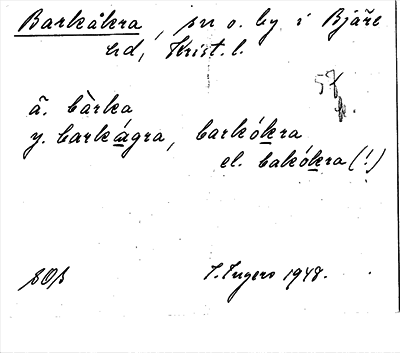 Barkåkra, sn o. by i Bjäre
hd, Krist. l.
57
ä. bàrka
y. barkágra, barkókra
el. bakókra (!)
SOÄ I. Ingers 1948.